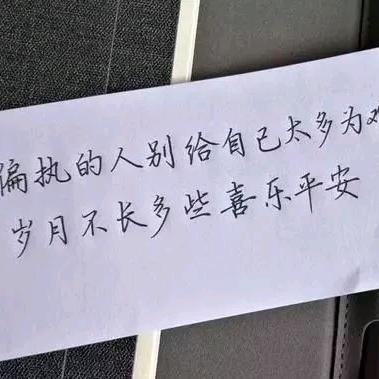 偏执的人别给自己太多为难
岁月不长多些喜乐平安